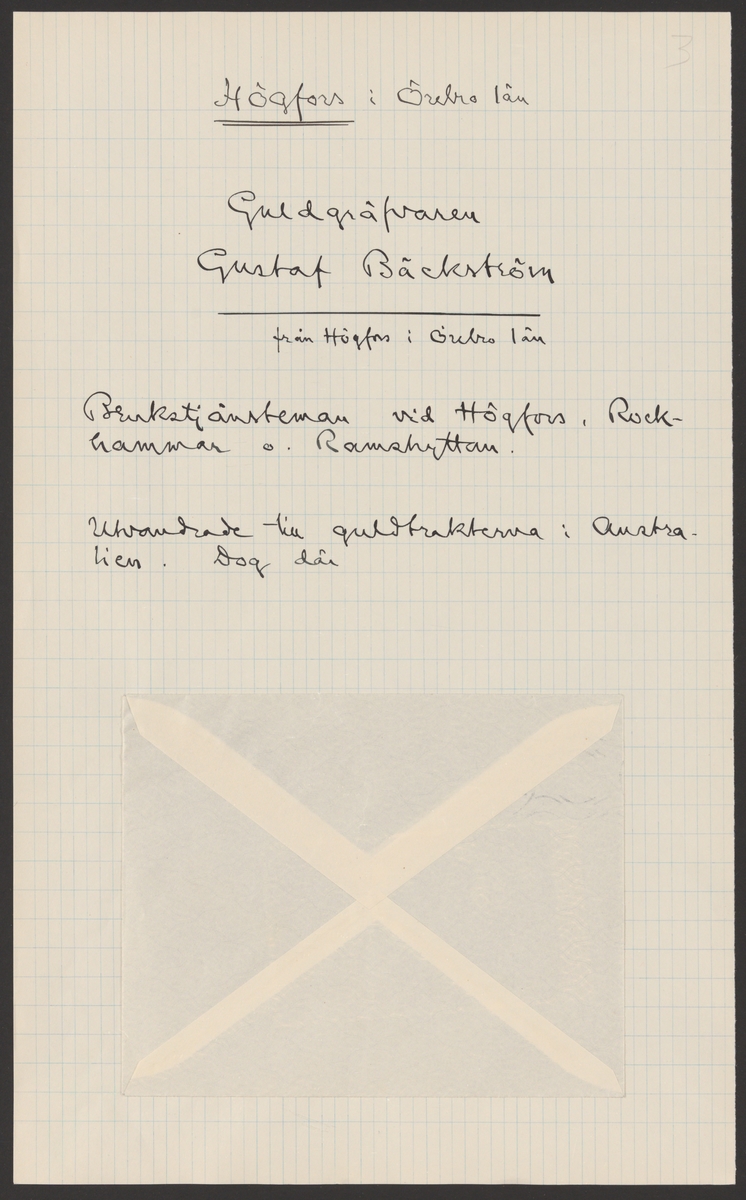 3
Högfors i Örebro län
Guldgräfvaren
Gustaf Bäckström
från Högfors i Örebro län
Brukstjänsteman vid Högfors, Rock-
hammar o. Ramshyttan.
Utvandrade till guldtrakterna i Austra-
lien. Dog där